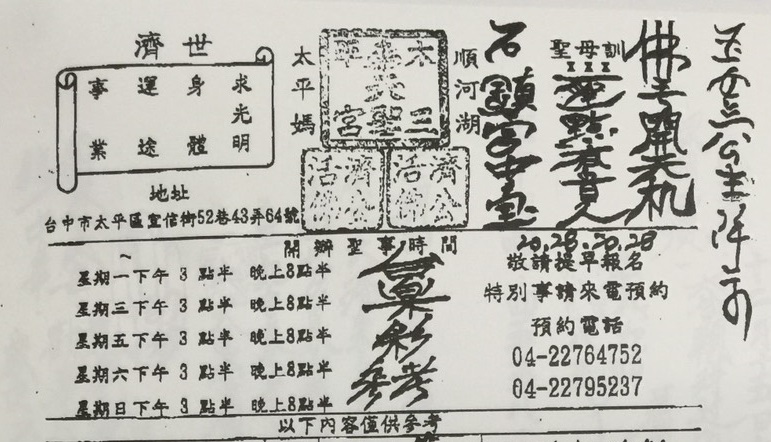 世濟
求光明
身體
運途
事業
地址
台中市太平區宜信街52巷43弄64號
順河湖
太平媽
濟公活佛
濟公活佛
聖母訓
佛子開天机
石鎮宮中壹
20.28.20.28
開辦聖事時間
星期一下午 3 點半 晚上8點半
星期三下午 3 點半 晚上8點半
星期五下午 3 點半 晚上8點半
星期六下午 3 點半 晚上8點半
星期日下午 3 點半 晚上8點半
合
彩
參考
敬請提早報名
特別事請來電預約
預約電話
04-22764752
04-22795237
以下內容僅供參考